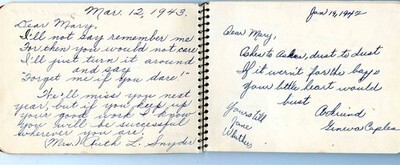 Mar. 12, 1943.
Dear Mary,
I'll not say remember me
For then you would not care
I'll just turn it around
and say
"Forget me if you dare!"
We'll miss you next
year, but if you keep up
your good work I know
you will be successful
wherever you are.
Mrs. Ruth L. Snyder
Jan 19, 1942
Dear Mary,
Ashes to Ashes, dust to dust
If it wern't for the boys
your little heart would
bust
A friend
Geneva
Yours till